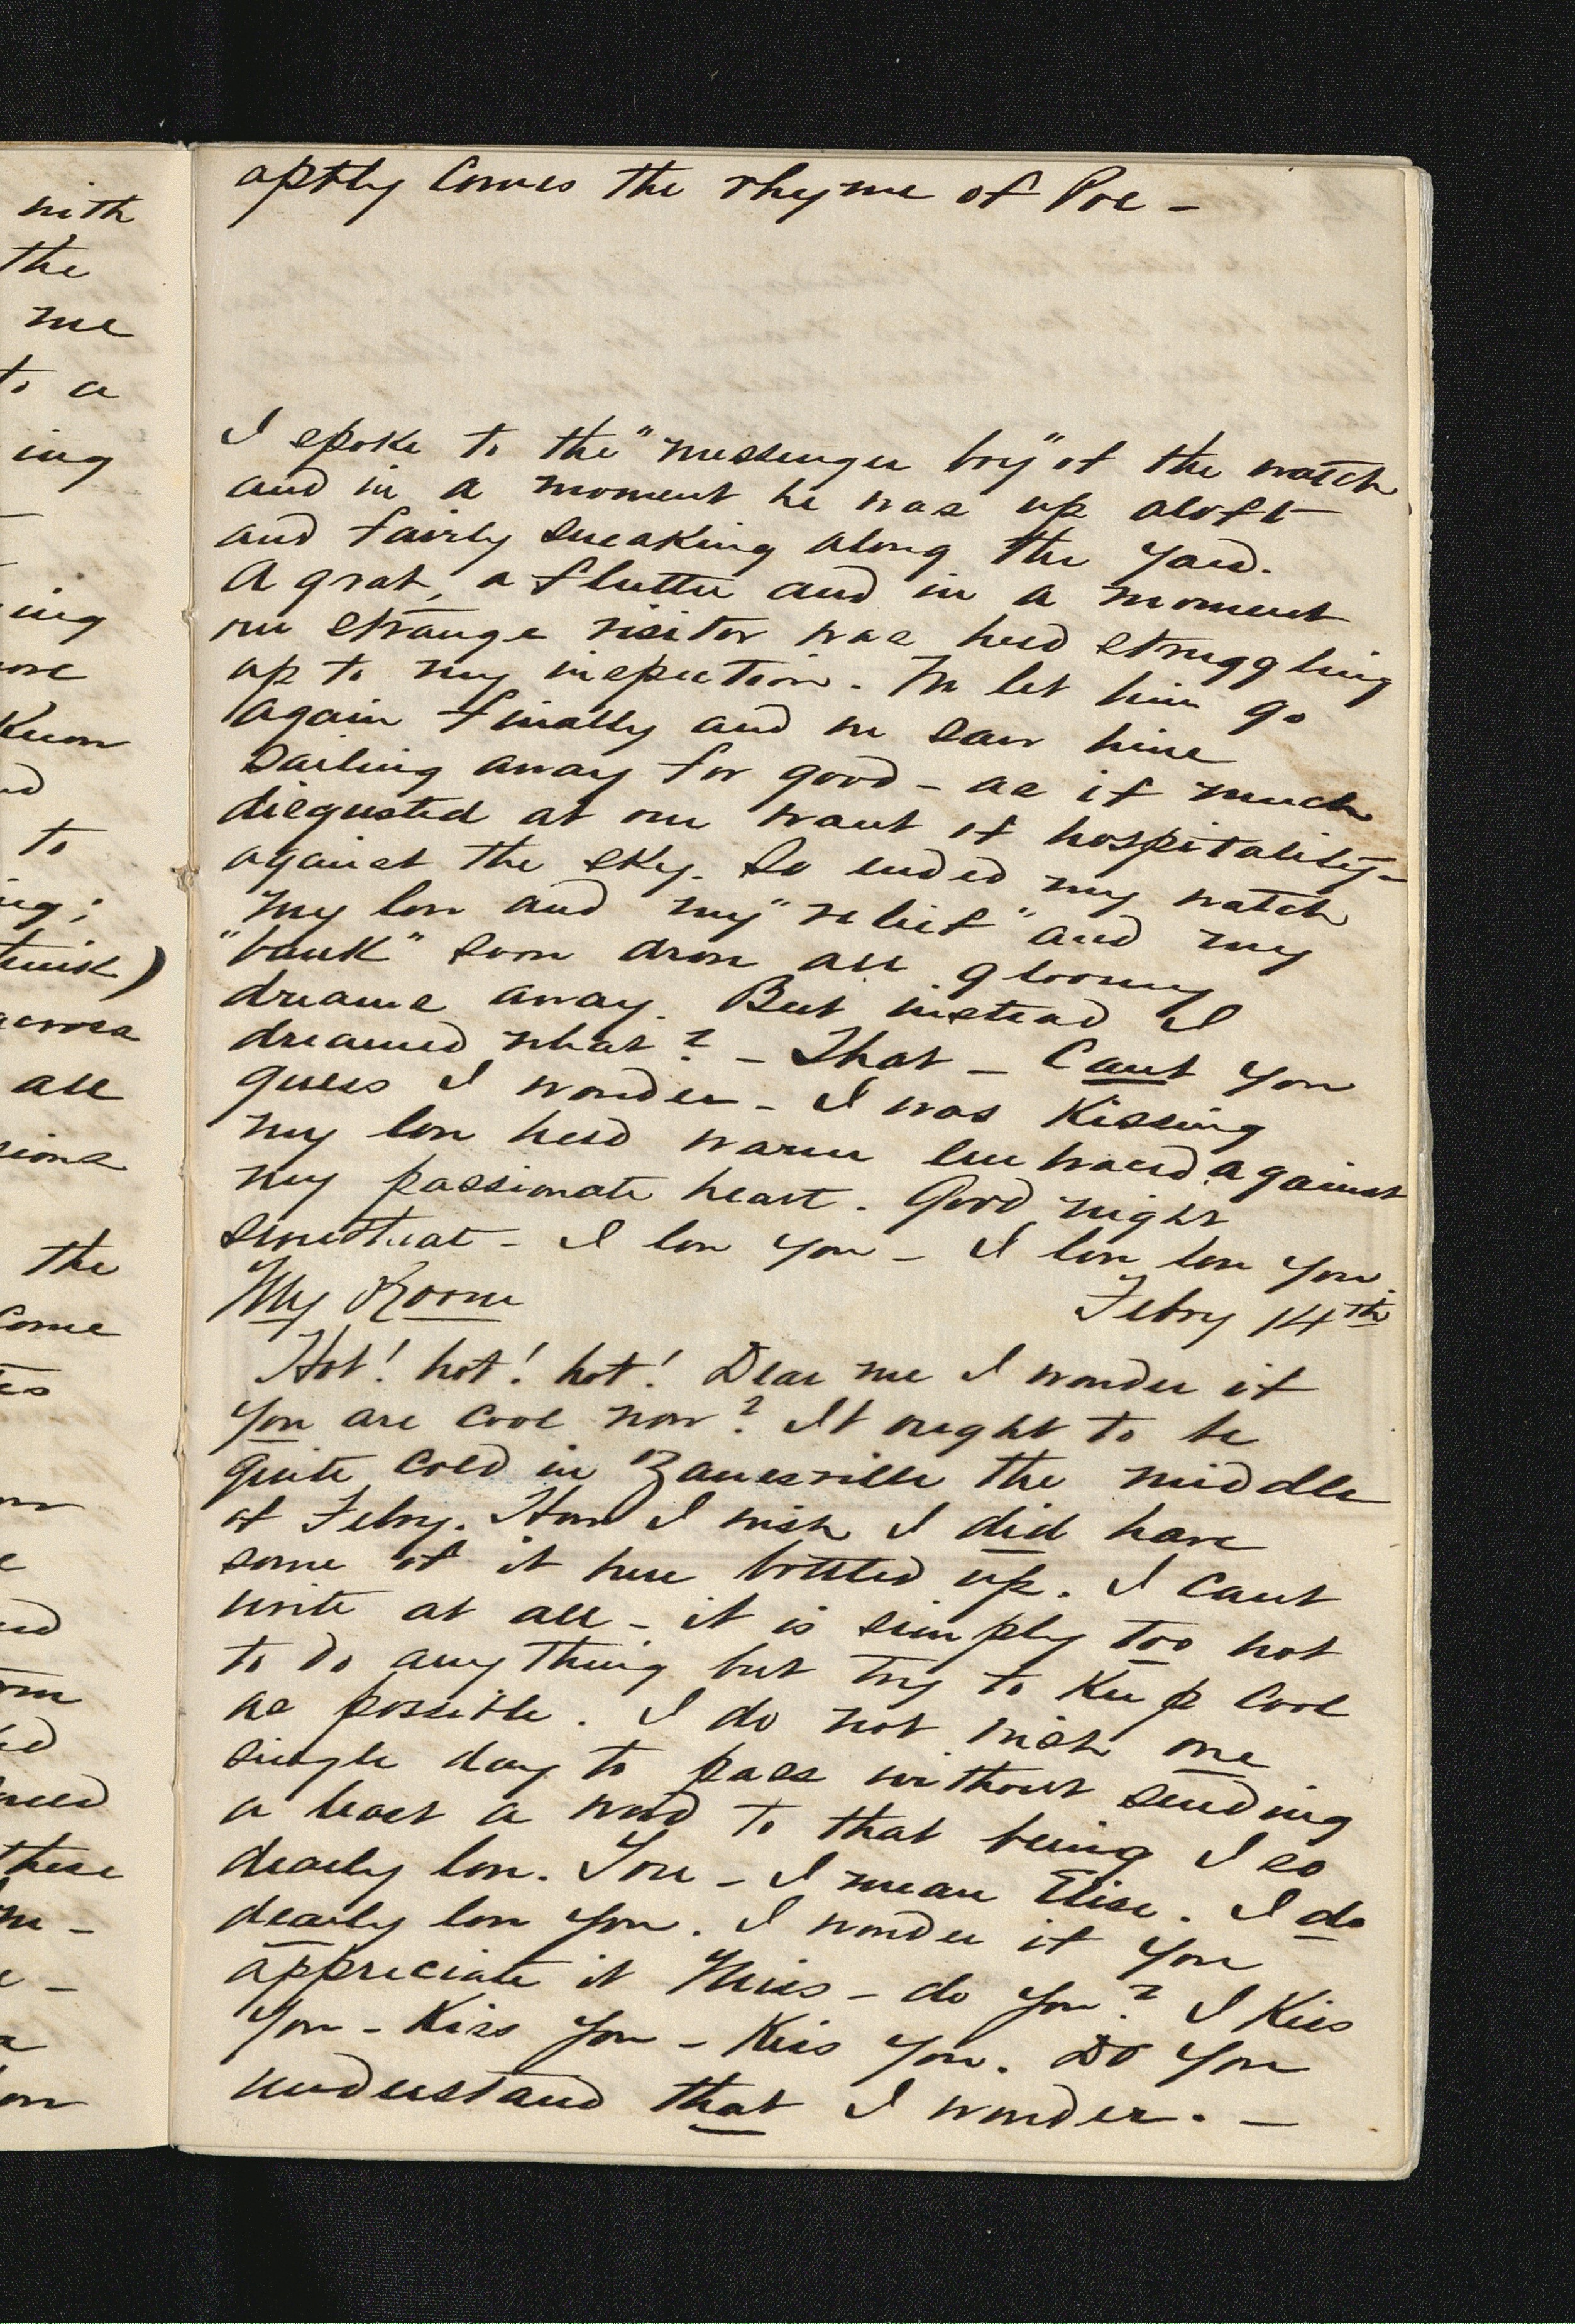 nith
the
me
to a
ing
ing
ore
Know
to
ing;
think)
across
all
sions
the
Come
these
aptly comes the rhyme of Poe -
I spoke to the "messenger boy" of the watch
and in a moment he was up aloft
and fairly sneaking along the yard.
A grab, a flutter and in a moment
our strange visitor was held struggling
up to my inspection. We let him go
again finally and we saw him
sailing away for good - as if much
disgusted at our want of hospitality -
against the sky. So ended my watch
My love and my "relief" and my
"bunk" soon drove all gloomy
dreams away. But instead I
dreamed what? - That - Cant you
guess I wonder - I was Kissing
my love held warm hand against
my passionate heart. Good night
sweetheart - I love you - I love love you.
My Room Febry 14th
Hot! hot! hot! Dear me I wonder if
you are cool now? It ought to be
quite cold in Zanesville the middle
of Febry. How I wish I did have
some of it here bottled up. I cant
write at all - it is simply too hot
to do any thing but try to Keep cool
as possible. I do not wish one
single day to pass without sending
a least a word to that being I so
dearly love. You - I mean Elise. I do
dearly love you. I wonder if you
appreciate it Miss - do you? I Kiss
you - Kiss you - Kiss you. Do you
understand that I wonder. -